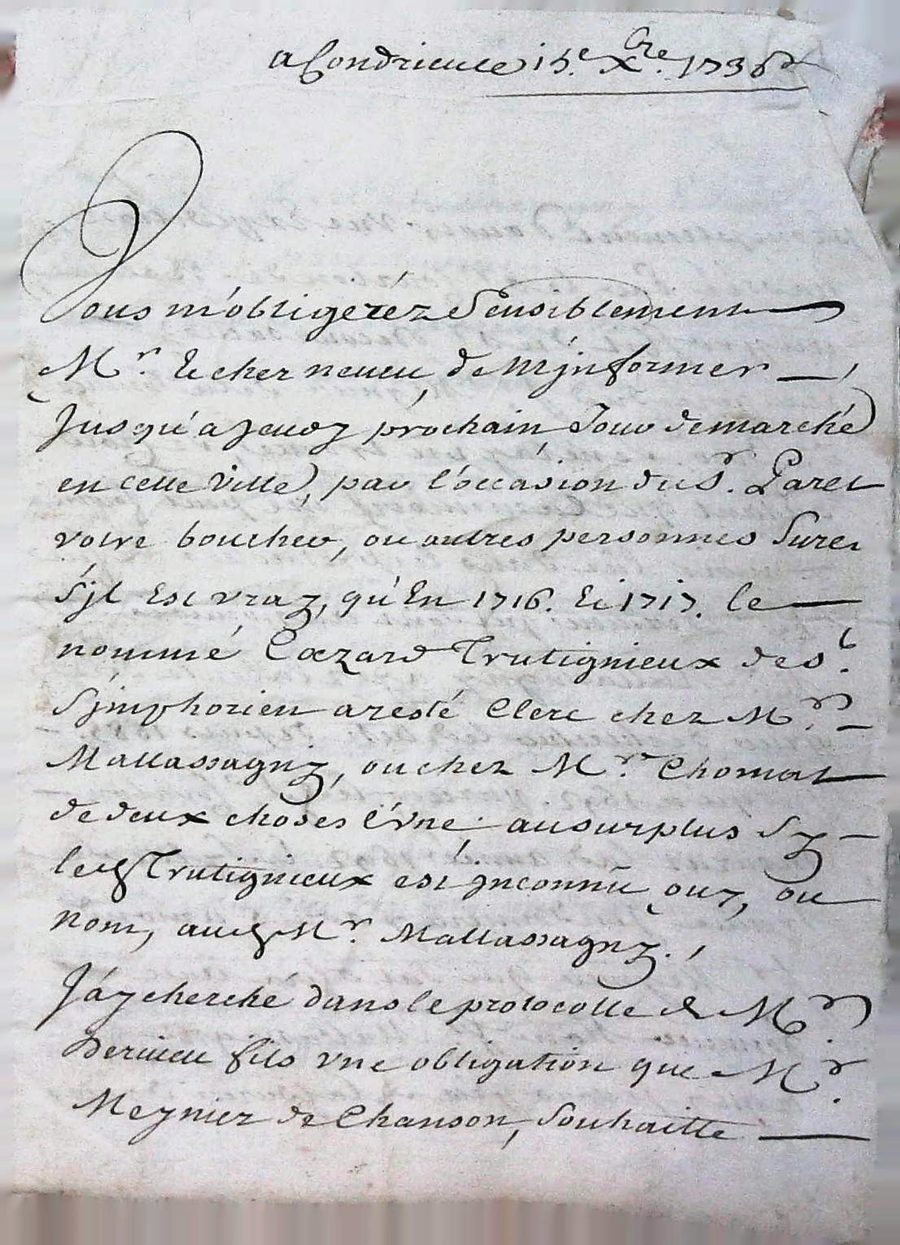 a Condrieu ce 15.e Xbre. 1736
Vous m'obligeréz Sensiblement
Mr. le cher neveu, de m'jnformer
Jusqu'a Jeudy prochain Jour de marché
en cette ville, par l'occasion du Sr. Paret
votre boucher, ou autres personnes Sures
Syl Est vray, qu'En 1716. Et 1717. le
nommé Lazard Trutignieux de St.
Symphorien a resté Clerc chez Mr.
Mallassagny, ou chez Mr. Chomat
de deux choses l'vne. au surplus Sy
led. Trutignieux est jnconnû ouy, ou
non, aud. Mr. Mallassagny.
J'ay cherché dans le protocolle de Mr
Derieu fils vne obligation que Mr.
Meynier de Chanson, Souhaitte